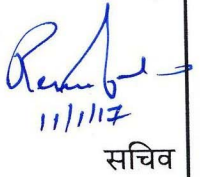 11/1/17
सचिव